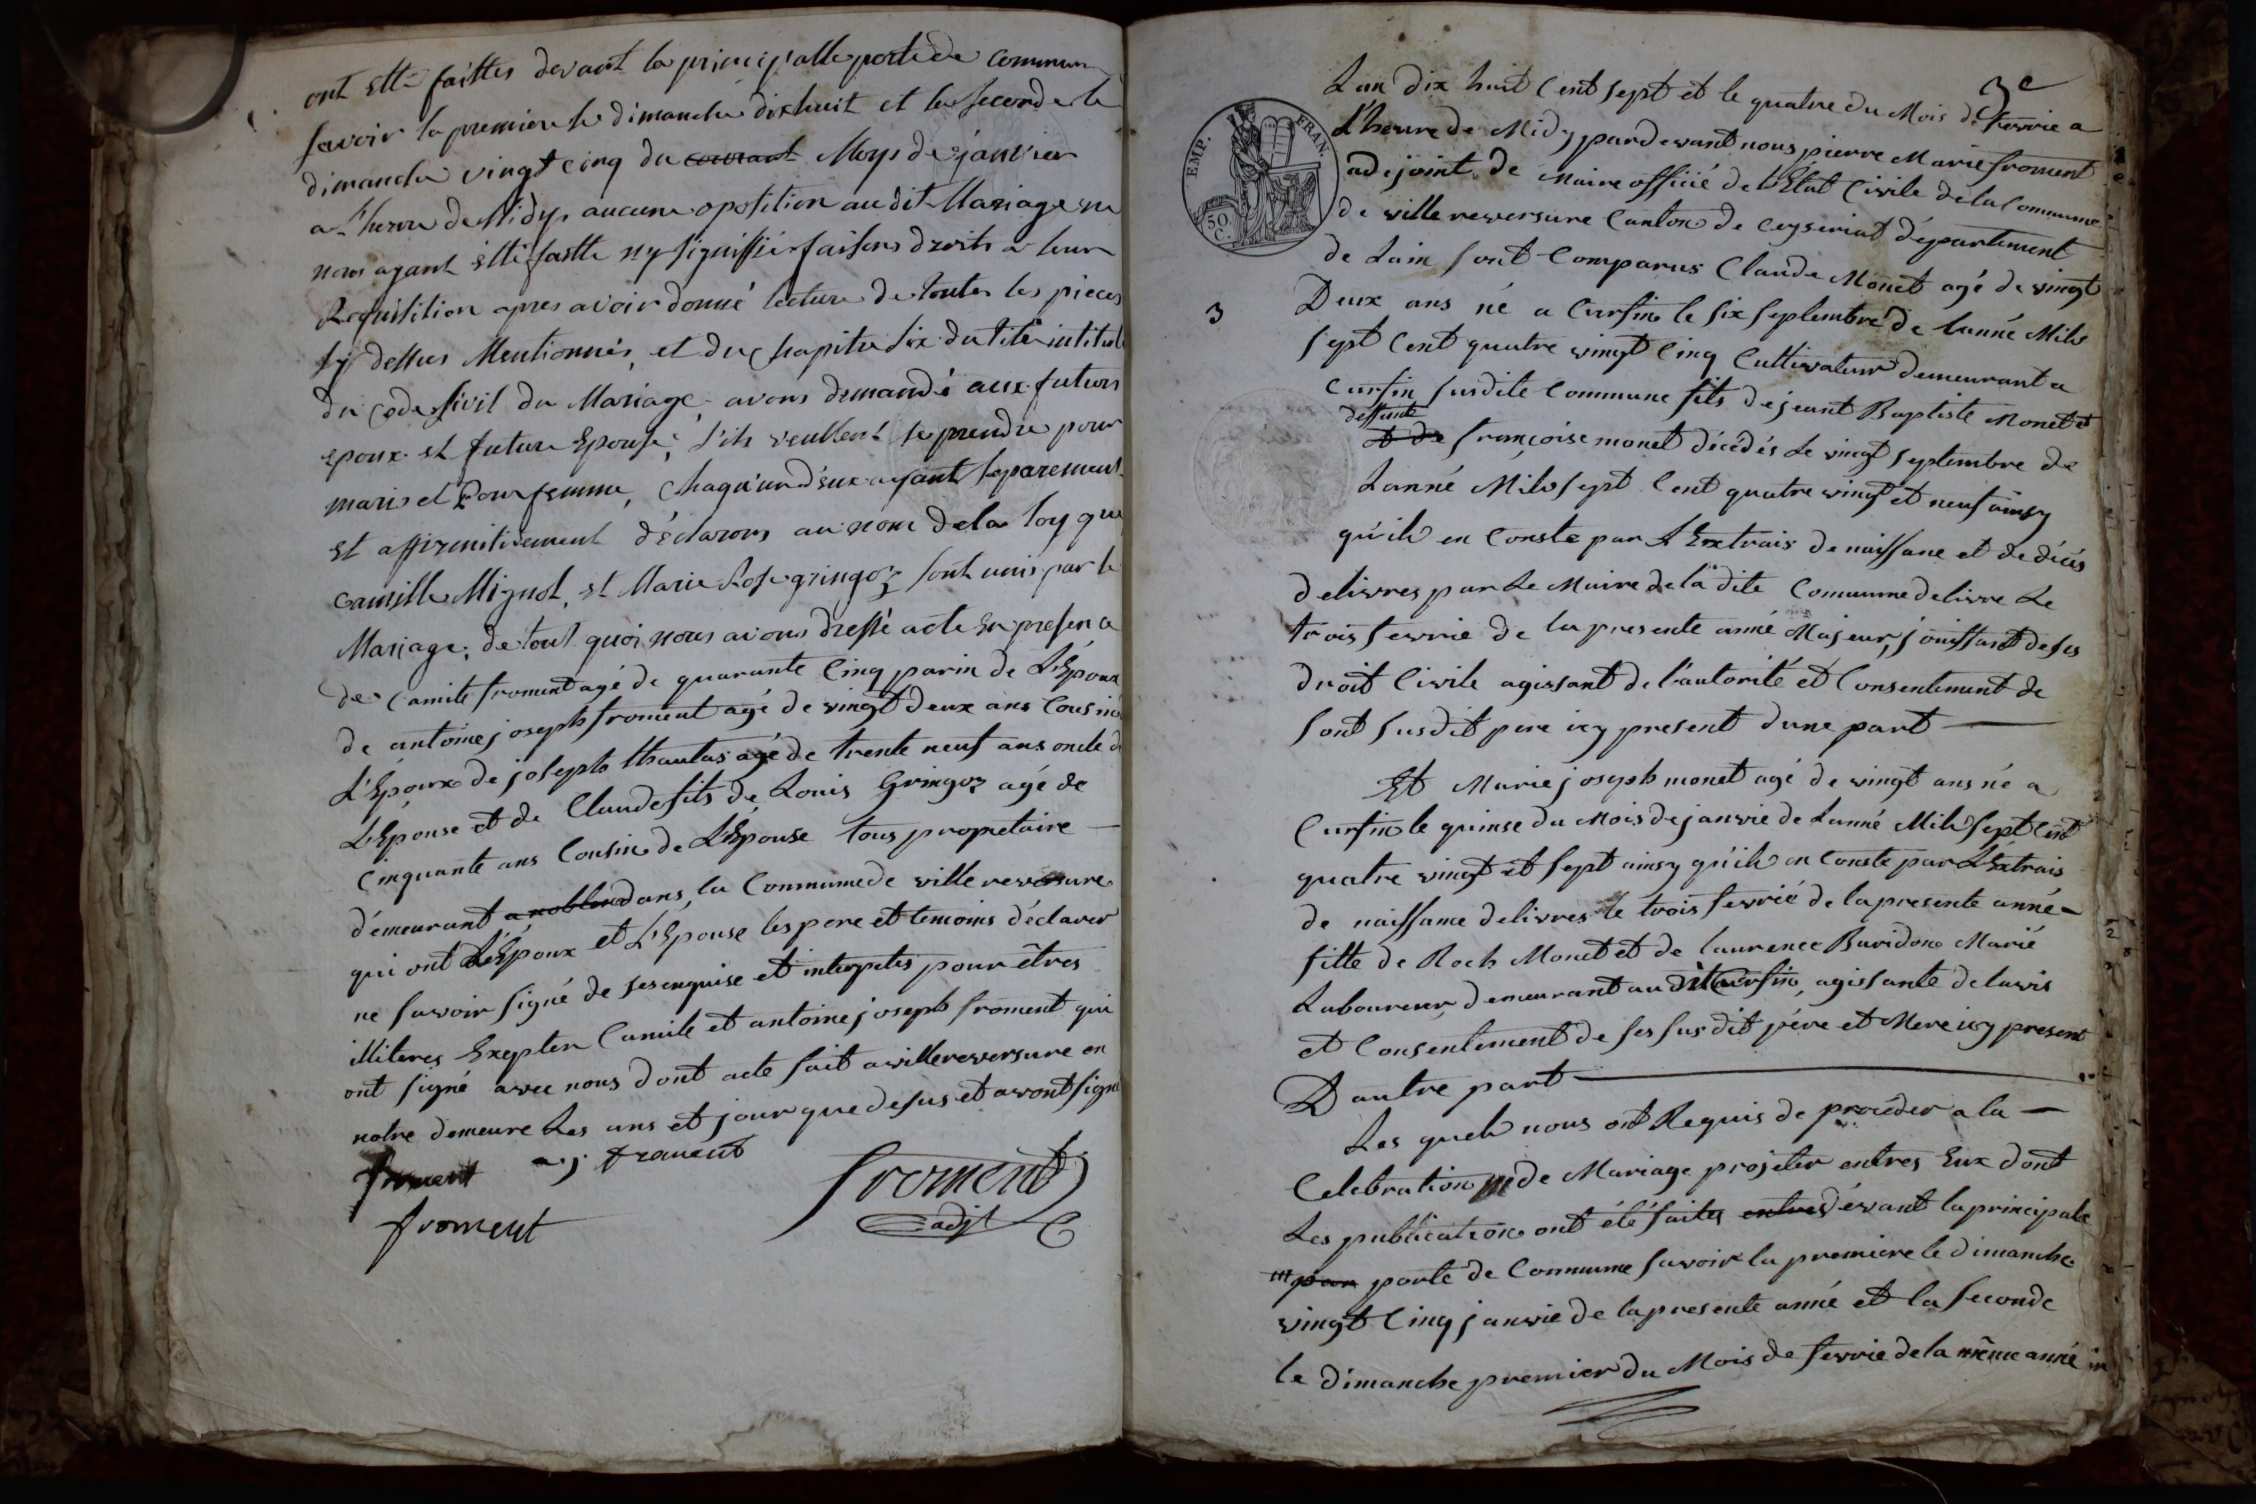 ont etté faittes devant la principalle porte de commun
savoir la premiere le dimanche dix huit et la seconde le
dimanche vingt cinq du courant Moys de janvier
a l'heure de Midy, aucune oposition audit Mariage ne
nous ayant etté faitte ny signiffié faisons droits a leur
Requisition apres avoir donné lecture de toutes les pieces
sy dessus Mentionnés, et du chapitre six du titre intitulé
du code sivil du Mariage avons demandé aux futurs
epoux et future Epouse, s'ils veullent se prendre pour
maris et Pour femme, chaqu'un d'eux ayant separement
et affirmitivement d'éclarons au nom de la loy que
Camille Mignot, et Marie Rose gringoz sont unis par le
Mariage, de tout quoi nous avons dressé acte En presence
de Camile froment agé de quarante Cinq parin de L'Epoux
de antoine joseph froment agé de vingt deux ans Cousin
L'Epoux de joseph thaulas agé de trente neuf ans oncle d
L'Epouse et de Claude fits de Louis Gringoz agé de
Cinquante ans Cousin de L'Epouse tous propretaire
d'emeurant a noblens dans la Commune de ville reversure
qui ont L'Epoux et L'Epouse les pere et temoins d'éclarer
ne savoir signé de ses enquise et interpetes pour êtres
illiteres Exepter Camile et antoine joseph froment qui
ont signé avec nous dont acte fait a villereversure en
notre demeure Les ans et jour que desus et avont signé
froment a j froment
froment
froment
adjt
3e
Lan dix huit Cent sept et le quatre du Mois de fevrie a
L'heure de Midy pardevant nous pierre Marie froment
adejoint de Maire officié de l'État Civile de la Commune
de ville reversure Canton de Ceyseriat département
de Lain sont Comparus Claude Monet agé de vingt
EMP. FRAN.
50 C.
3
Deux ans né a Cursin le six septembre de Lanné Mile
sept Cent quatre vingt Cinq Cultivateur demeurant a
Cursin susdite Commune fits de jeant Baptiste Monet et
deffunte
et de françoise monet décédés Le vingt septembre de
Lanné Mile sept Cent quatre vingt et neuf ainsy
qu'ile en Conste par L'Extrais de naissane et de décés
delivres par Le Maire de la dite Commune delivre Le
trois fevrie de la presente anné Majeur, jouissant de ses
droit Civile agissant de l'autorité et Consentement de
sont susdit pere icy present dune part
Et Marie joseph monet agé de vingt ans né a
Cursin le quinse du Mois de janvie de Lanné Mile sept Cent
quatre vingt et sept ainsy qu'ile en Conste par L'Extrais
de naissance delivres le trois fevrié de la presente anné
fitte de Roch Monet et de laurence Buridon Marié
Laboureur demeurant au dit Cursin, agissante de lavis
et Consentement de ses susdit père et Mere icy present
Dautre part
Les quels nous ont Requis de proceder a la
Celebration de Mariage projeter entres Eux dont
Les publication ont été faites entres dévant la principale
par porte de Commune savoir la premiere le dimanche
vingt Cinq janvie de la presente anné et la seconde
le dimanche premier du Mois de fevrie de la même anné